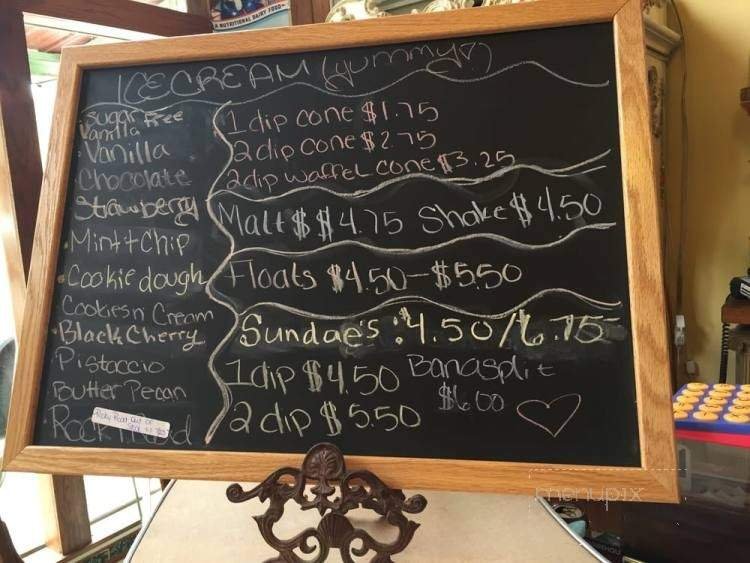 A NUTRITIONAL DAIRY FOOD
ICE CREAM (yummy!)
Sugar free
Vanilla
Vanilla
Chocolate
Strawberry
Mint + Chip
Cookie dough
Cookies n Cream
Black Cherry
Pistaccio
Butter Pecan
Rocky Road
1 dip cone $1.75
2 dip cone $2.75
2 dip waffel cone $3.25
Malt $ $4.75 Shake $4.50
Floats $4.50 - $5.50
Sundae's : $4.50/6.75
1 dip $4.50 Banasplit
$6.00
2 dip $5.50
menupix